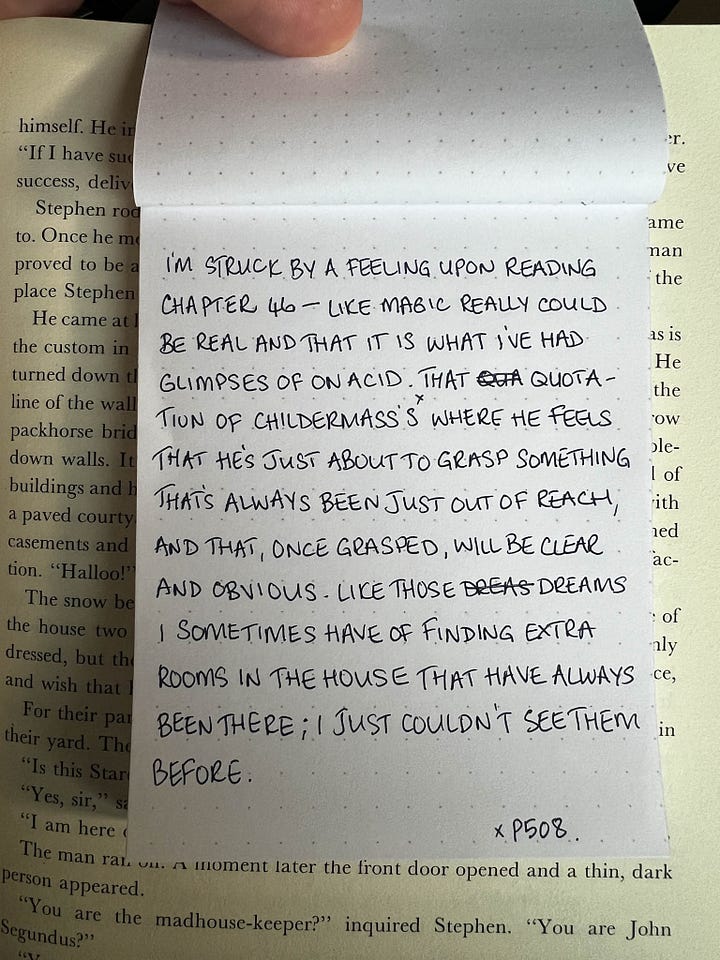 himself. He
"If I have
success,
Stephen
to. Once he
proved to be a
place Stephen
He came at
the custom in
turned down
line of the wall
packhorse
down walls. It
buildings and
a paved
casements and
tion. "Halloo!"
The snow
the house two
dressed, but
and wish that
For their
their yard.
"Is this
"Yes, sir,"
"I am here
ve
the
as is
He
the
of
of
in
I'M STRUCK BY A FEELING UPON READING
CHAPTER 46 – LIKE MAGIC REALLY COULD
BE REAL AND THAT IT IS WHAT I'VE HAD
GLIMPSES OF ON ACID. THAT QUA QUOTA-
TION OF CHILDERMASS'S x WHERE HE FEELS
THAT HE'S JUST ABOUT TO GRASP SOMETHING
THAT'S ALWAYS BEEN JUST OUT OF REACH,
AND THAT, ONCE GRASPED, WILL BE CLEAR
AND OBVIOUS. LIKE THOSE DREAS DREAMS
I SOMETIMES HAVE OF FINDING EXTRA
ROOMS IN THE HOUSE THAT HAVE ALWAYS
BEEN THERE; I JUST COULDN'T SEE THEM
BEFORE.
x P508.
The man ran A moment later the front door opened and a thin, dark
person appeared.
"You are the madhouse-keeper?" inquired Stephen. "You are John
Segundus?"